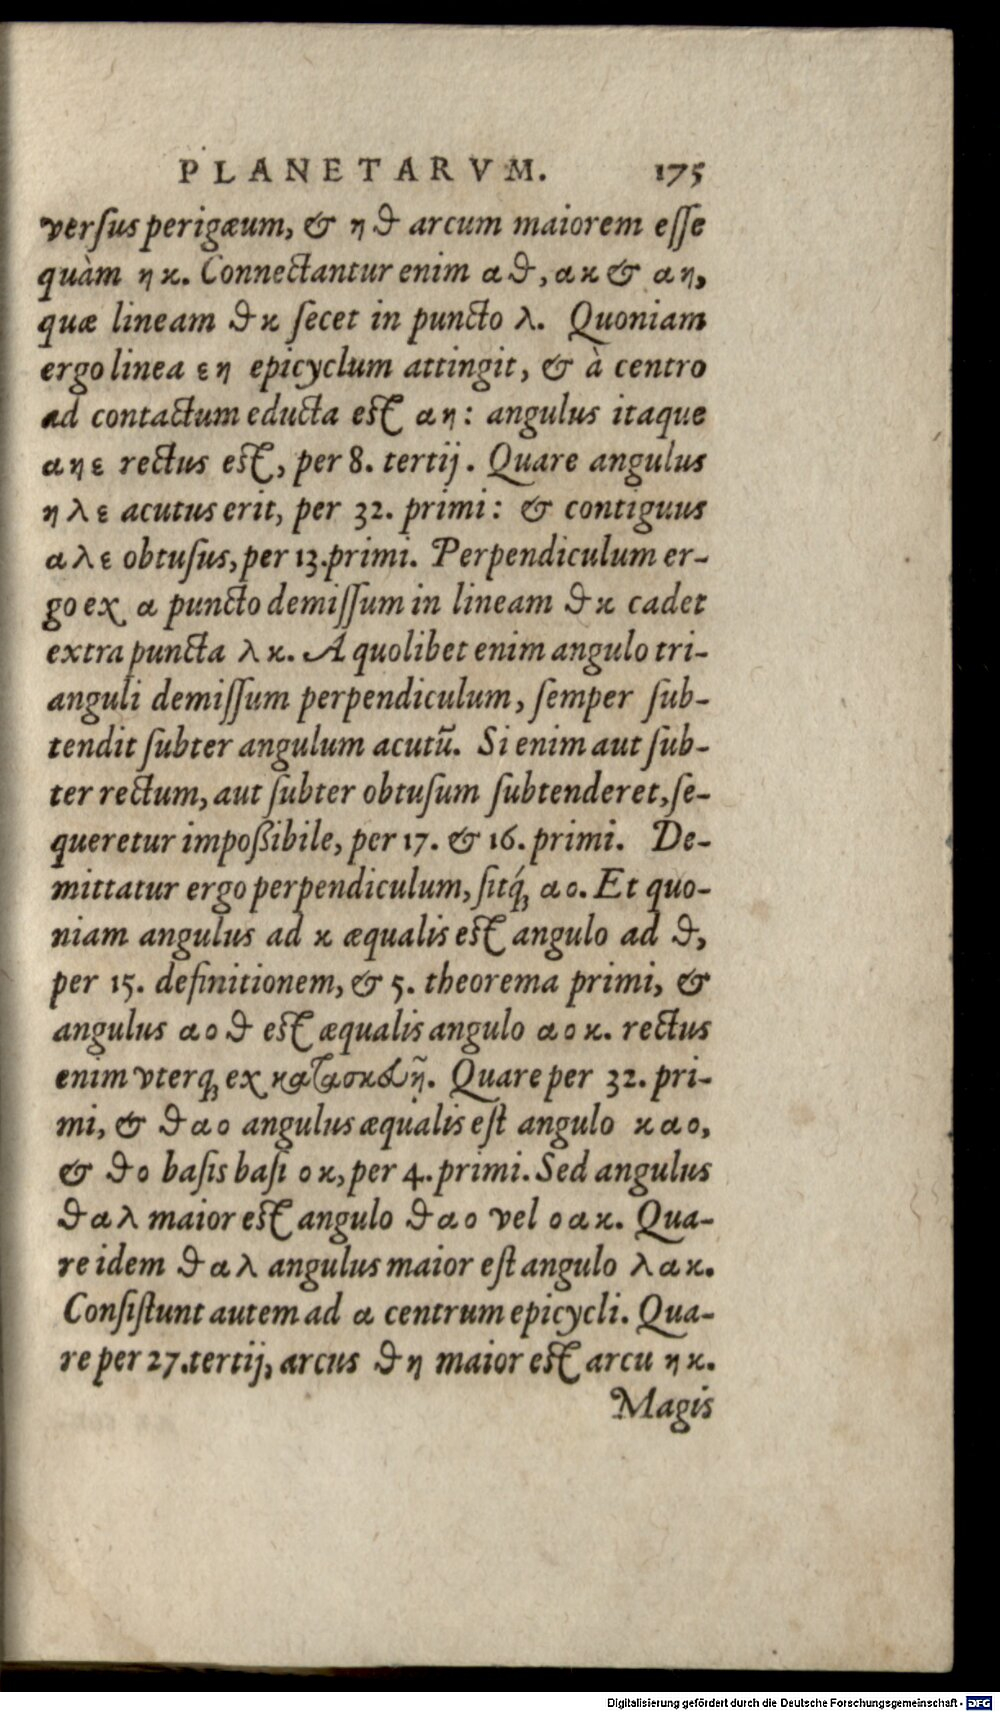 PLANETARVM. 175
verſus perigæum, & η ϑ arcum maiorem eſſe
quàm η κ. Connectantur enim α ϑ, α κ & α η,
quæ lineam ϑ κ ſecet in puncto λ. Quoniam
ergo linea ε η epicyclum attingit, & à centro
ad contactum educta eſt α η: angulus itaque
α η ε rectus eſt, per 8. tertij. Quare angulus
η λ ε acutus erit, per 32. primi: & contiguus
α λ ε obtuſus, per 13. primi. Perpendiculum er-
go ex α puncto demiſſum in lineam ϑ κ cadet
extra puncta λ κ. A quolibet enim angulo tri-
anguli demiſſum perpendiculum, ſemper ſub-
tendit ſubter angulum acutū. Si enim aut ſub-
ter rectum, aut ſubter obtuſum ſubtenderet, ſe-
queretur impoßibile, per 17. & 16. primi. De-
mittatur ergo perpendiculum, ſitq́; α ο. Et quo-
niam angulus ad κ æqualis eſt angulo ad ϑ,
per 15. definitionem, & 5. theorema primi, &
angulus α ο ϑ eſt æqualis angulo α ο κ. rectus
enim vterq; ex κατασκευῆ. Quare per 32. pri-
mi, & ϑ α ο angulus æqualis eſt angulo κ α ο,
& ϑ ο baſis baſi ο κ, per 4. primi. Sed angulus
ϑ α λ maior eſt angulo ϑ α ο vel ο α κ. Qua-
re idem ϑ α λ angulus maior eſt angulo λ α κ.
Conſiſtunt autem ad α centrum epicycli. Qua-
re per 27. tertij, arcus ϑ η maior eſt arcu η κ.
Magis
Digitalisierung gefördert durch die Deutsche Forschungsgemeinschaft - DFG